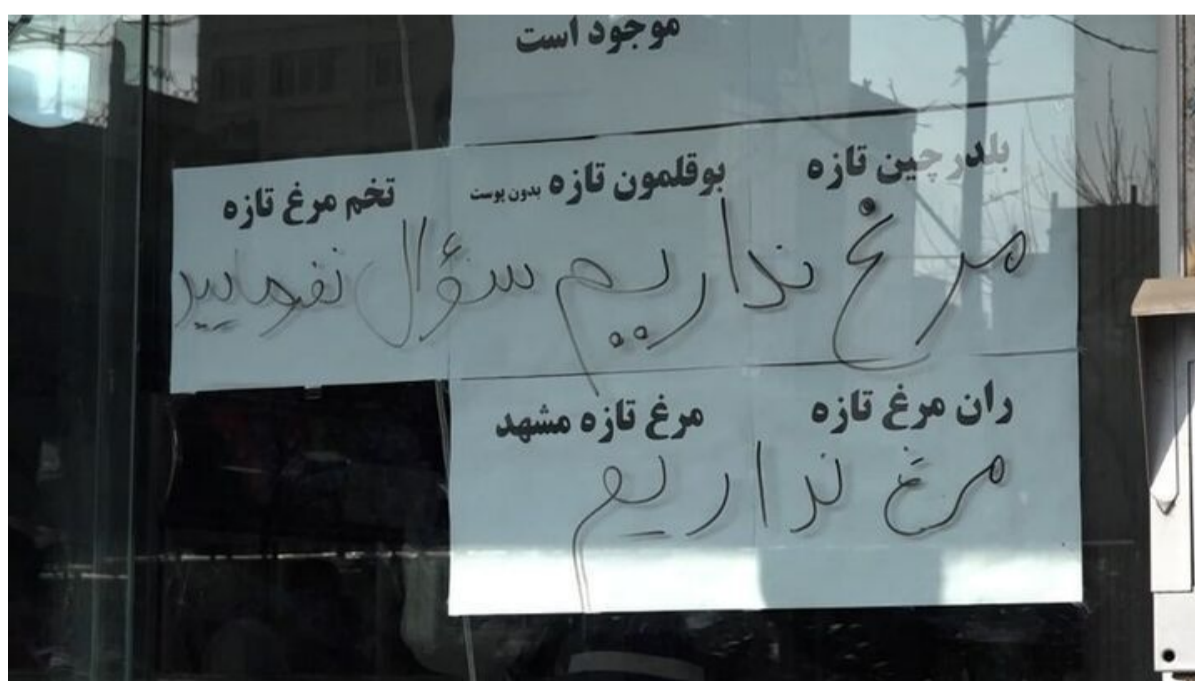 موجود است
بلدرچین تازه
بوقلمون تازه بدون پوست
تخم مرغ تازه
مرغ نداریم سؤال نفرمایید
ران مرغ تازه
مرغ تازه مشهد
مرغ نداریم